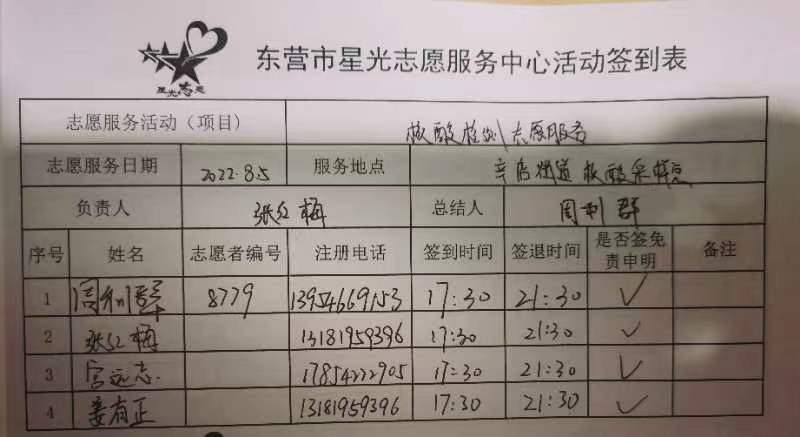 星光志愿
东营市星光志愿服务中心活动签到表
志愿服务活动（项目） 核酸检测志愿服务
志愿服务日期 2022.8.5 服务地点 辛店街道核酸采样点
负责人 张红梅 总结人 周利群
序号 姓名 志愿者编号 注册电话 签到时间 签退时间 是否签免责申明 备注
1 周利群 8779 13954669153 17:30 21:30 ✓
2 张红梅 13181959396 17:30 21:30 ✓
3 宫远志 17854222905 17:30 21:30 ✓
4 姜有正 13181959396 17:30 21:30 ✓